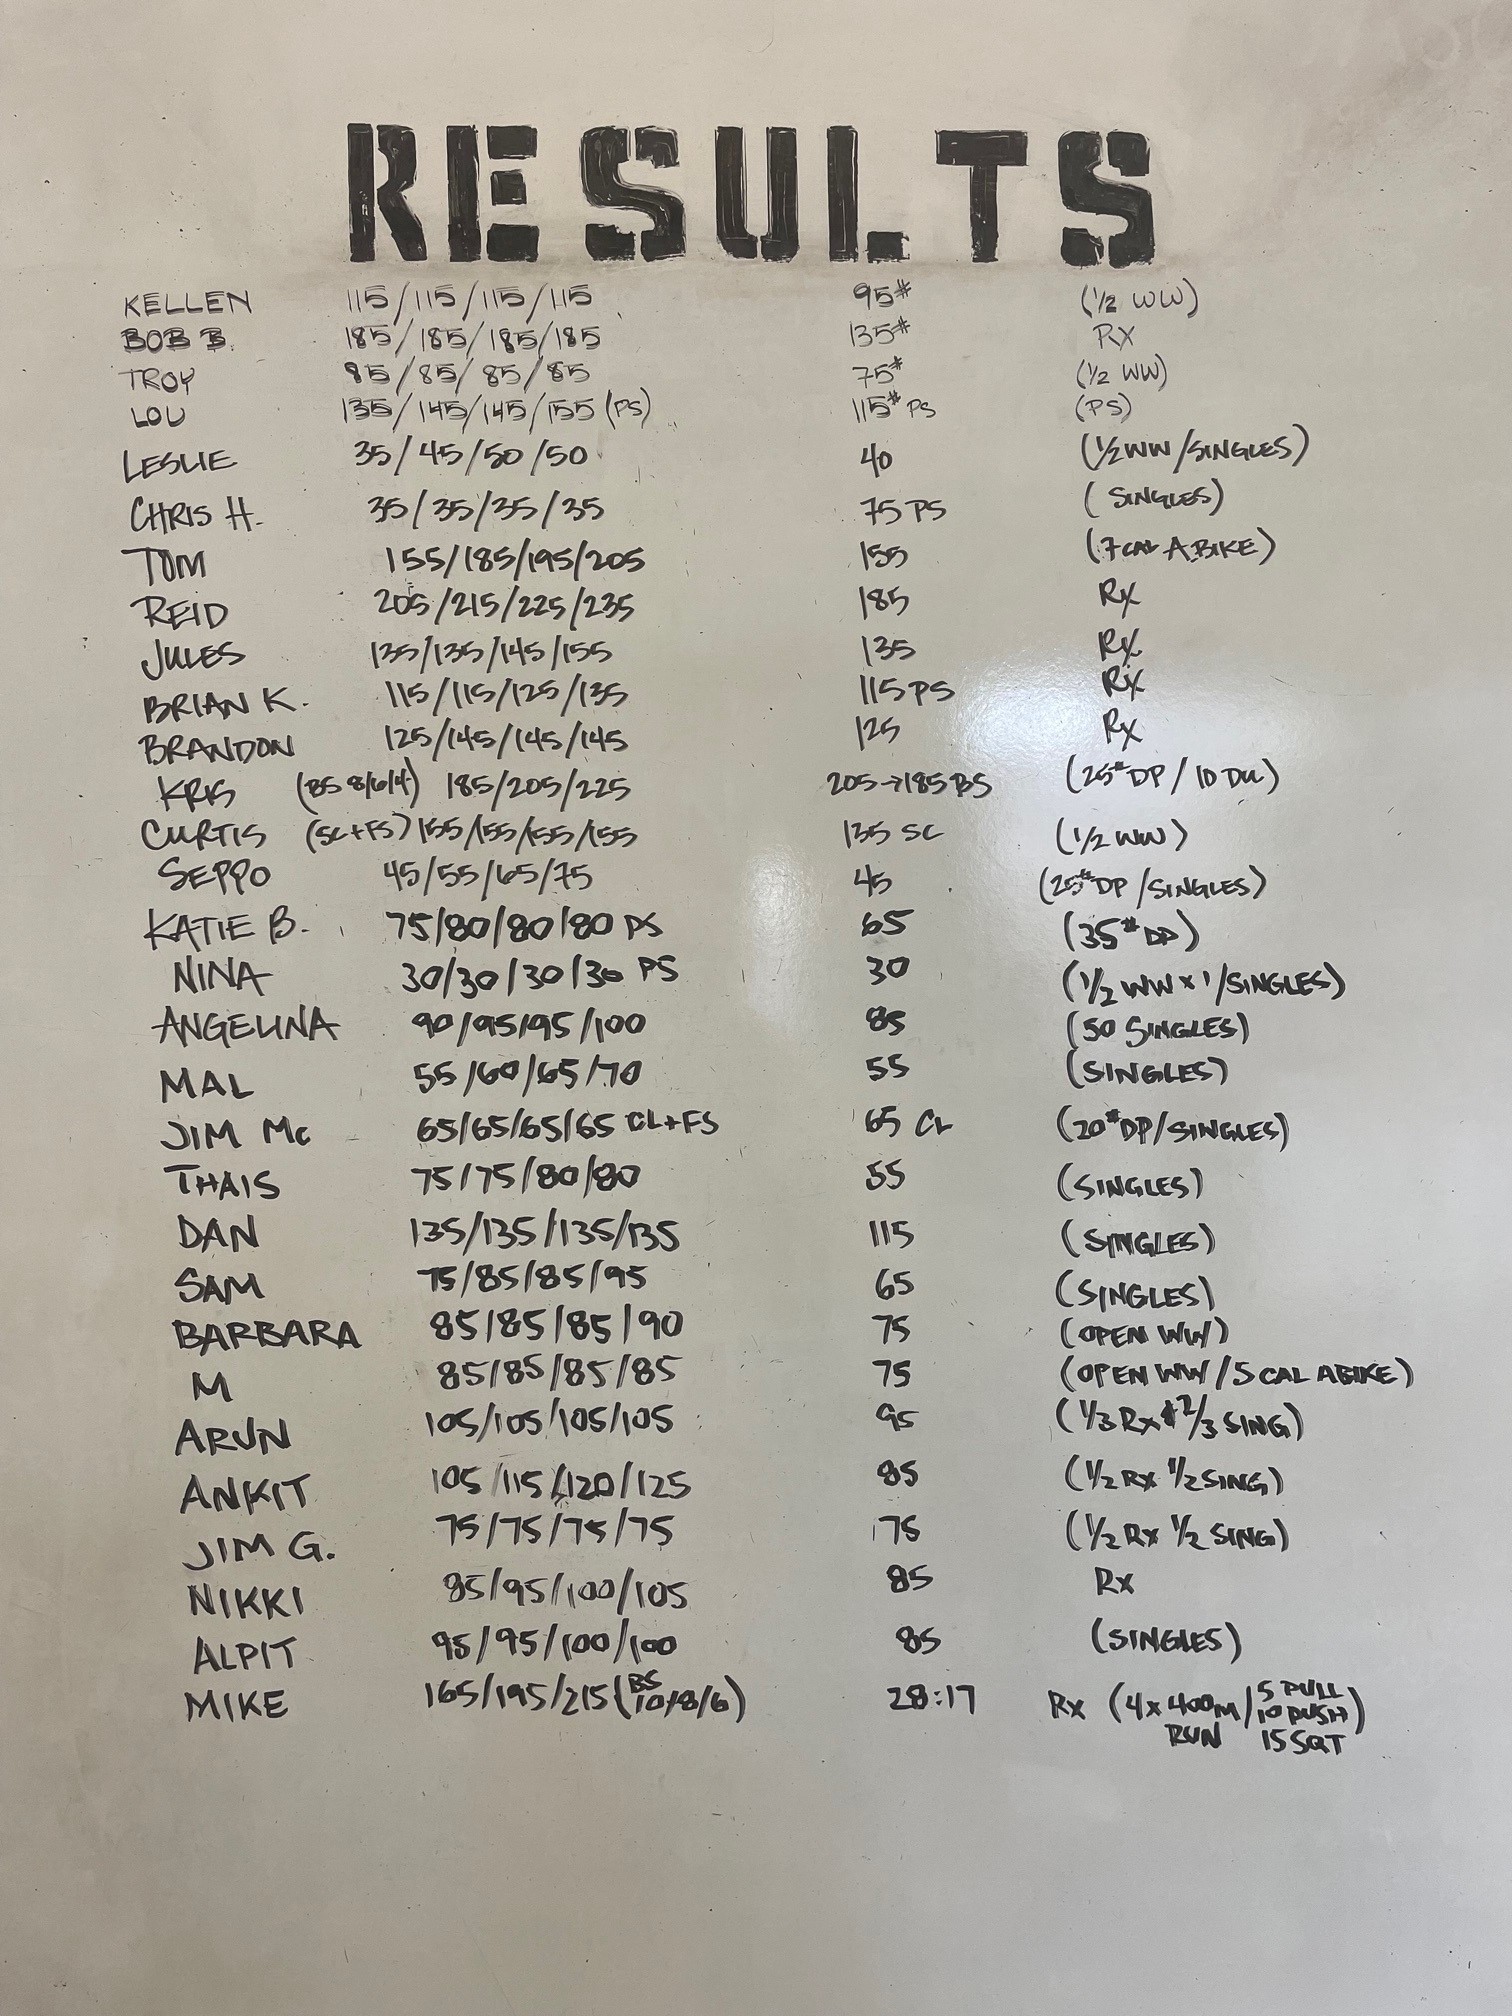 RESULTS
KELLEN 115/115/115/115 95# (1/2 WW)
BOB B. 185/185/185/185 135# RX
TROY 85/85/85/85 75# (1/2 WW)
LOU 135/145/145/155 (PS) 115# PS (PS)
LESLIE 35/45/50/50 40 (1/2 WW/SINGLES)
CHRIS H. 35/35/35/35 75 PS (SINGLES)
TOM 155/185/195/205 155 (7 CAL A.BIKE)
REID 205/215/225/235 185 Rx
JULES 135/135/145/155 135 Rx
BRIAN K. 115/115/125/135 115 PS Rx
BRANDON 125/145/145/145 125 Rx
KRIS (BS 8/6/4) 185/205/225 205→185 BS (25# DP/10 DU)
CURTIS (SC+FS) 155/155/155/155 135 SC (1/2 WW)
SEPPO 45/55/65/75 45 (25# DP/SINGLES)
KATIE B. 75/80/80/80 PS 65 (35# DP)
NINA 30/30/30/30 PS 30 (1/2 WW x 1/SINGLES)
ANGELINA 90/95/95/100 85 (50 SINGLES)
MAL 55/60/65/70 55 (SINGLES)
JIM Mc 65/65/65/65 CL+FS 65 CL (20# DP/SINGLES)
THAIS 75/75/80/80 55 (SINGLES)
DAN 135/135/135/135 115 (SINGLES)
SAM 75/85/85/95 65 (SINGLES)
BARBARA 85/85/85/90 75 (OPEN WW)
M 85/85/85/85 75 (OPEN WW/5 CAL ABIKE)
ARUN 105/105/105/105 95 (1/3 Rx & 2/3 SING)
ANKIT 105/115/120/125 85 (1/2 Rx 1/2 SING)
JIM G. 75/75/75/75 75 (1/2 Rx 1/2 SING)
NIKKI 85/95/100/105 85 Rx
ALPIT 95/95/100/100 85 (SINGLES)
MIKE 165/195/215 (BS 10/8/6) 28:17 Rx (4x400M RUN/5 PULL 10 PUSH 15 SQT)